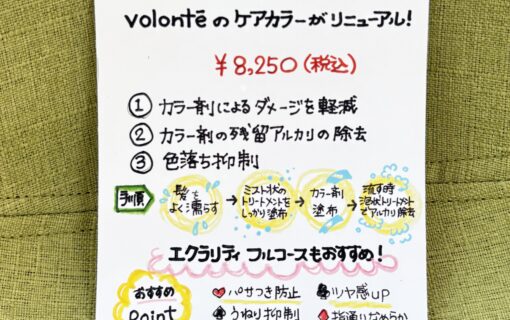 volontéのケアカラーがリニューアル!
¥8,250(税込)
① カラー剤によるダメージを軽減
② カラー剤の残留アルカリの除去
③ 色落ち抑制
手順
髪を
よく濡らす
→
ミスト状の
トリートメントを
しっかり塗布
→
カラー剤
塗布
→
流す時
泡状トリートメント
でアルカリ除去
エクラリティ フルコースもおすすめ!
おすすめ
Point
♥パサつき防止
♣ツヤ感UP
♠うねり抑制
♦指通りなめらか